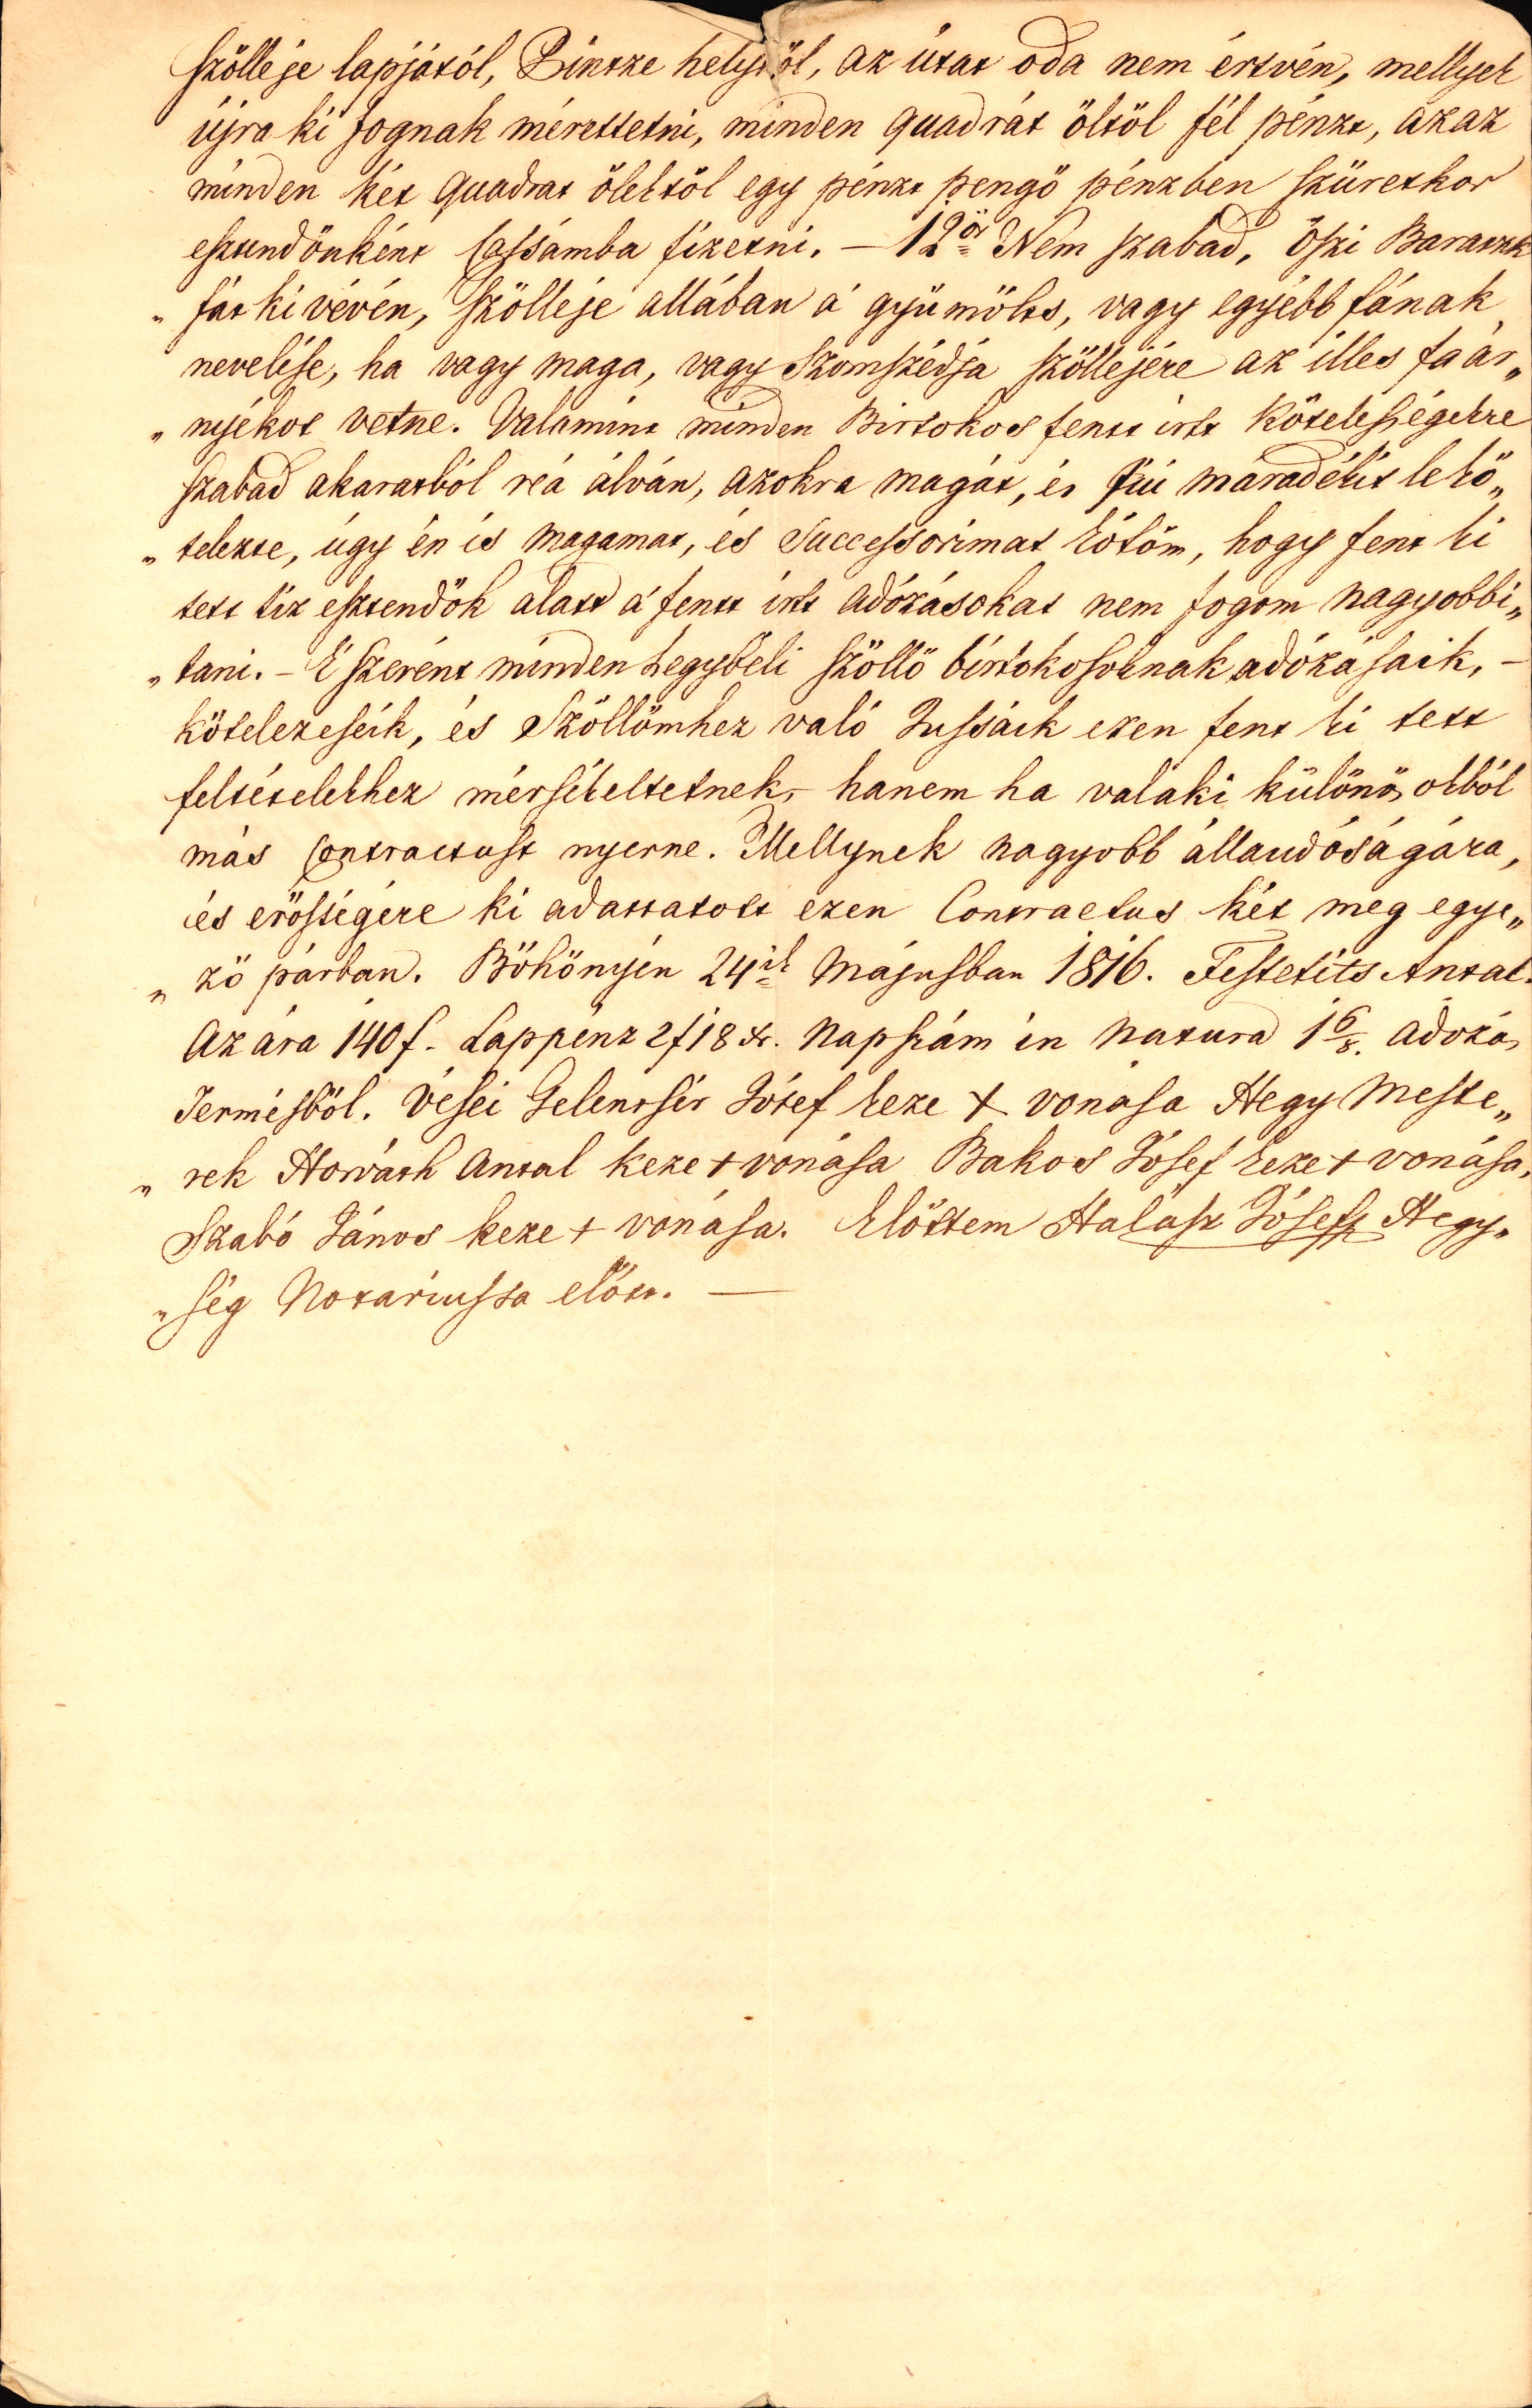 szölleje lapjától, Pintze helytöl, az útat oda nem értvén, mellyek
újra ki fognak mérettetni, minden quadrát öltöl fél pénzt, azaz
minden két quadrat ölektöl egy pénzt pengö pénzben szüretkor
esztendönként Cassámba fizetni. — 12ör Nem szabad, öszi Baratzk
„ fát kivévén, szölleje allában á gyümölts, vagy egyébb fának
nevelése, ha vagy maga, vagy Szomszédja szöllejére az illes fa ár„
„ nyékot vetne. Valamint minden Birtokos fentt irtt Kötelességekre
szabad akaratból reá álván, azokra magát, és fiú máradékit le kö„
„ telezte, úgy én is magamat, és Successorimat kötöm, hogy fent ki
tett tiz esztendök alatt á fentt irtt adózásokat nem fogom nagyobbi„
„ tani. – E szerént minden hegybéli szöllö birtokosoknak adózásaik, –
kötelezeseik, és Szöllömhez való Jussaik ezen fent ki tett
feltételekhez mérsékeltetnek, – hanem ha valaki különös okból
más Contractust nyerne. Mellynek nagyobb állandóságára,
és erösségére ki adattatott ezen Contractus két meg egye„
„ zö párban. Böhönyén 24ik Májusban 1816. Festetits Antal.
Az ára 140 f. Lappénz 2 f 18 xr. Napszám in Natura 1 6/8. adozás
Termésböl. Vései Gelentsér Jósef keze + vonása Hegy Meste„
„ rek Horváth Antal keze + vonása Bakos Jósef keze + vonása,
Szabó János keze + vonása. Elöttem Halász Jósef Hegy„
„ ség Notariussa elött. —